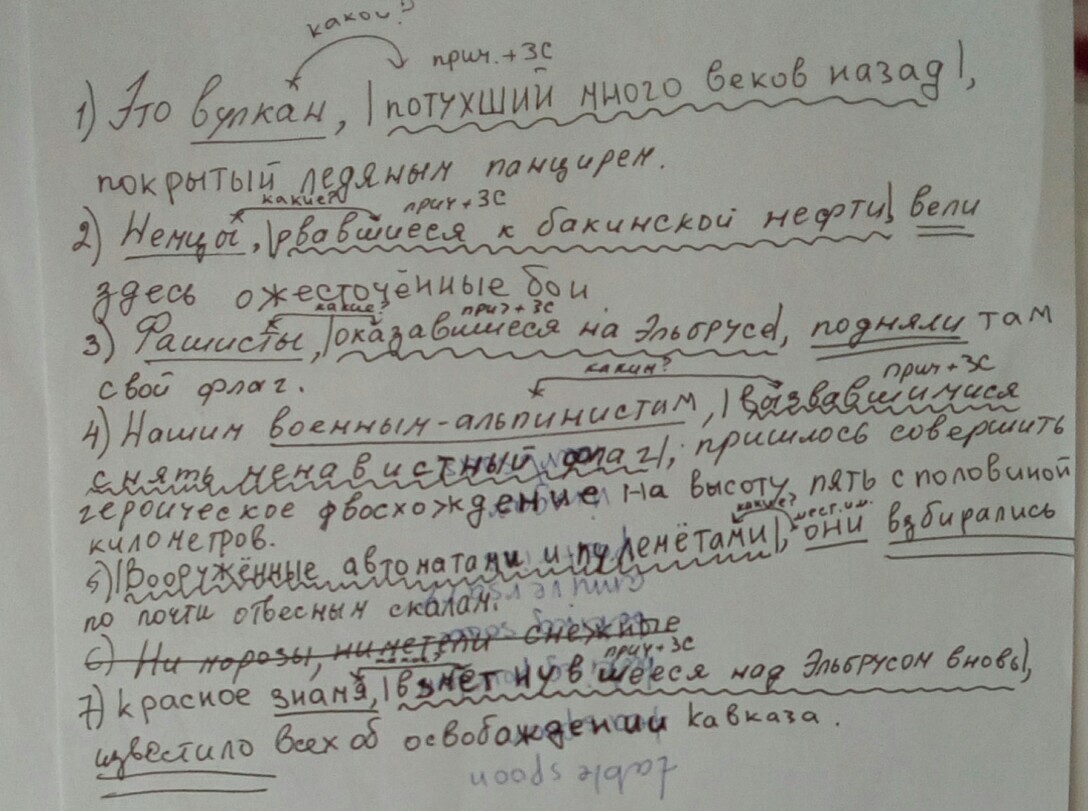 какой?
прич. + ЗС
1) Это вулкан, |потухший много веков назад|,
покрытый ледяным панцирем.
какие? прич + ЗС
2) Немцы, |рвавшиеся к бакинской нефти| вели
здесь ожесточённые бои.
какие? прич + ЗС
3) Фашисты, |оказавшиеся на Эльбрусе|, подняли там
свой флаг.
каким? прич + ЗС
4) Нашим военным-альпинистам, |вызвавшимися
снять ненавистный флаг|, пришлось совершить
героическое восхождение на высоту пять с половиной
километров.
какие? мест. им.
5) |Вооружённые автоматами и пулемётами|, они взбирались
по почти отвесным скалам.
6) Ни морозы, ни метели снежные
прич + ЗС
7) Красное знамя, |взметнувшееся над Эльбрусом вновь|,
известило всех об освобождении Кавказа.
table spoon